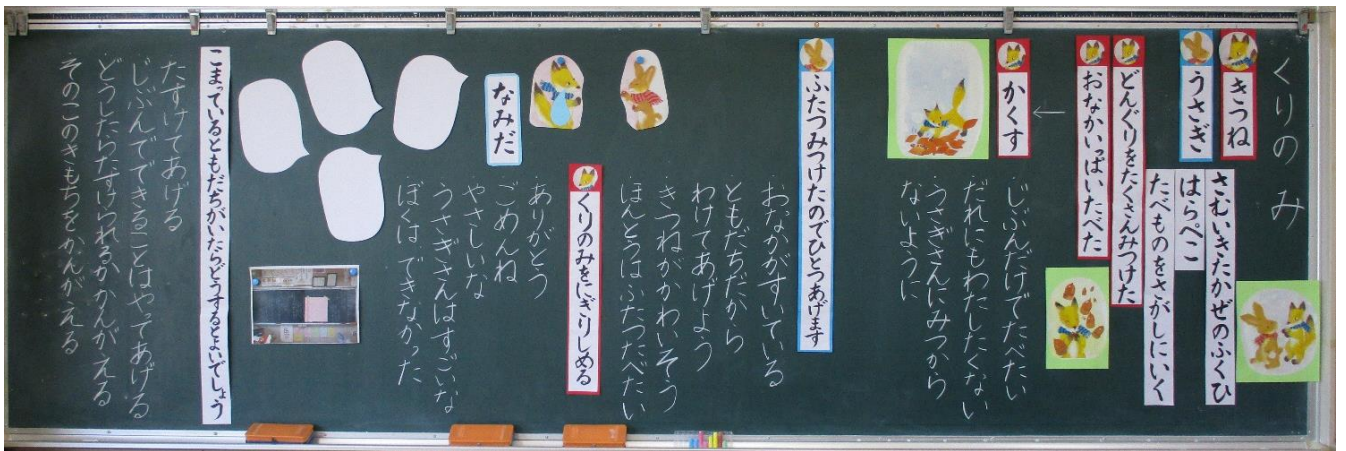 くりのみ
きつね
うさぎ
さむいきたかぜのふくひ
はらぺこ
たべものをさがしにいく
どんぐりをたくさんみつけた
おなかいっぱいたべた
←
かくす
じぶんだけでたべたい
だれにもわたしたくない
うさぎさんにみつから
ないように
ふたつみつけたのでひとつあげます
おなかがすいている
ともだちだから
わけてあげよう
きつねがかわいそう
ほんとうはふたつたべたい
くりのみをにぎりしめる
なみだ
ありがとう
ごめんね
やさしいな
うさぎさんはすごいな
ぼくはできなかった
こまっているともだちがいたらどうするとよいでしょう
たすけてあげる
じぶんでできることはやってあげる
どうしたらたすけられるかかんがえる
そのこのきもちをかんがえる